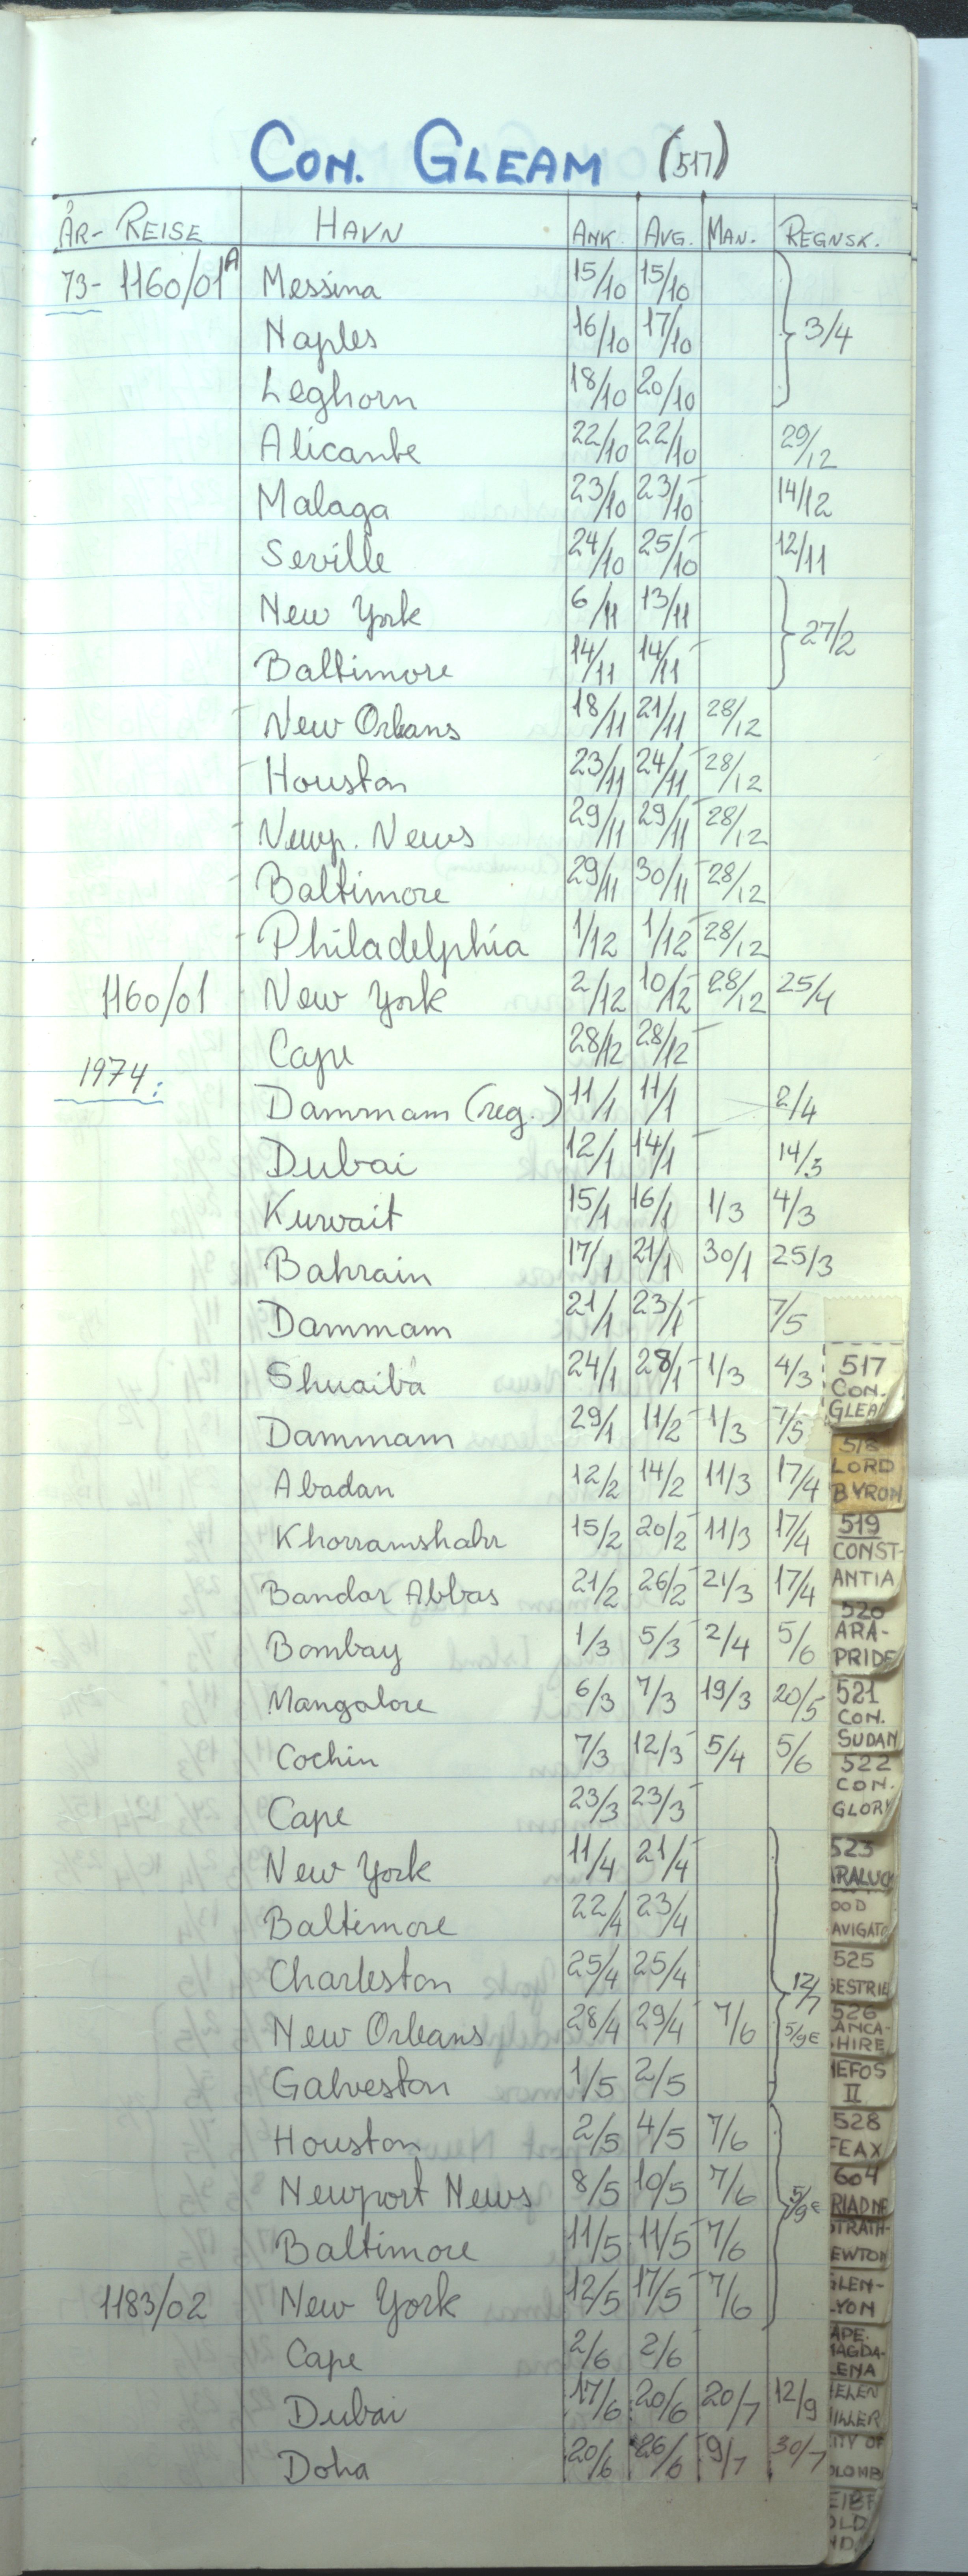 CON. GLEAM (517)
ÅR- REISE HAVN ANK. AVG. MAN. REGNSK.
73- 1160/01A Messina 15/10 15/10
Naples 16/10 17/10 3/4
Leghorn 18/10 20/10
Alicante 22/10 22/10 29/12
Malaga 23/10 23/10 14/12
Seville 24/10 25/10 12/11
New York 6/11 13/11
Baltimore 14/11 14/11 27/2
New Orleans 18/11 21/11 28/12
Houston 23/11 24/11 28/12
Newp. News 29/11 29/11 28/12
Baltimore 29/11 30/11 28/12
Philadelphia 1/12 1/12 28/12
1160/01 New York 2/12 10/12 28/12 25/4
Cape 28/12 28/12
1974:
Dammam (reg.) 11/1 11/1 2/4
Dubai 12/1 14/1 14/3
Kuwait 15/1 16/1 1/3 4/3
Bahrain 17/1 21/1 30/1 25/3
Dammam 21/1 23/1 7/5
Shuaiba 24/1 28/1 1/3 4/3
Dammam 29/1 11/2 1/3 7/5
Abadan 12/2 14/2 11/3 17/4
Khorramshahr 15/2 20/2 11/3 17/4
Bandar Abbas 21/2 26/2 21/3 17/4
Bombay 1/3 5/3 2/4 5/6
Mangalore 6/3 7/3 19/3 20/5
Cochin 7/3 12/3 5/4 5/6
Cape 23/3 23/3
New York 11/4 21/4
Baltimore 22/4 23/4
Charleston 25/4 25/4 12/7
New Orleans 28/4 29/4 7/6 5/9E
Galveston 1/5 2/5
Houston 2/5 4/5 7/6
Newport News 8/5 10/5 7/6 5/9E
Baltimore 11/5 11/5 7/6
1183/02 New York 12/5 17/5 7/6
Cape 2/6 2/6
Dubai 17/6 20/6 20/7 12/9
Doha 20/6 26/6 9/7 30/7
517
CON.
GLEA
518
LORD
BYRON
519
CONST-
ANTIA
520
ARA-
PRIDE
521
CON.
SUDAN
522
CON.
GLORY
523
RALUC
OOD
AVIGATO
525
SESTRIE
526
ANCA-
HIRE
NEFOS
II
528
FEAX
604
RIADNE
STRATH-
EWTON
GLEN-
LYON
APE.
MAGDA-
LENA
ELEN
ILLER
ITY OF
OLOMB